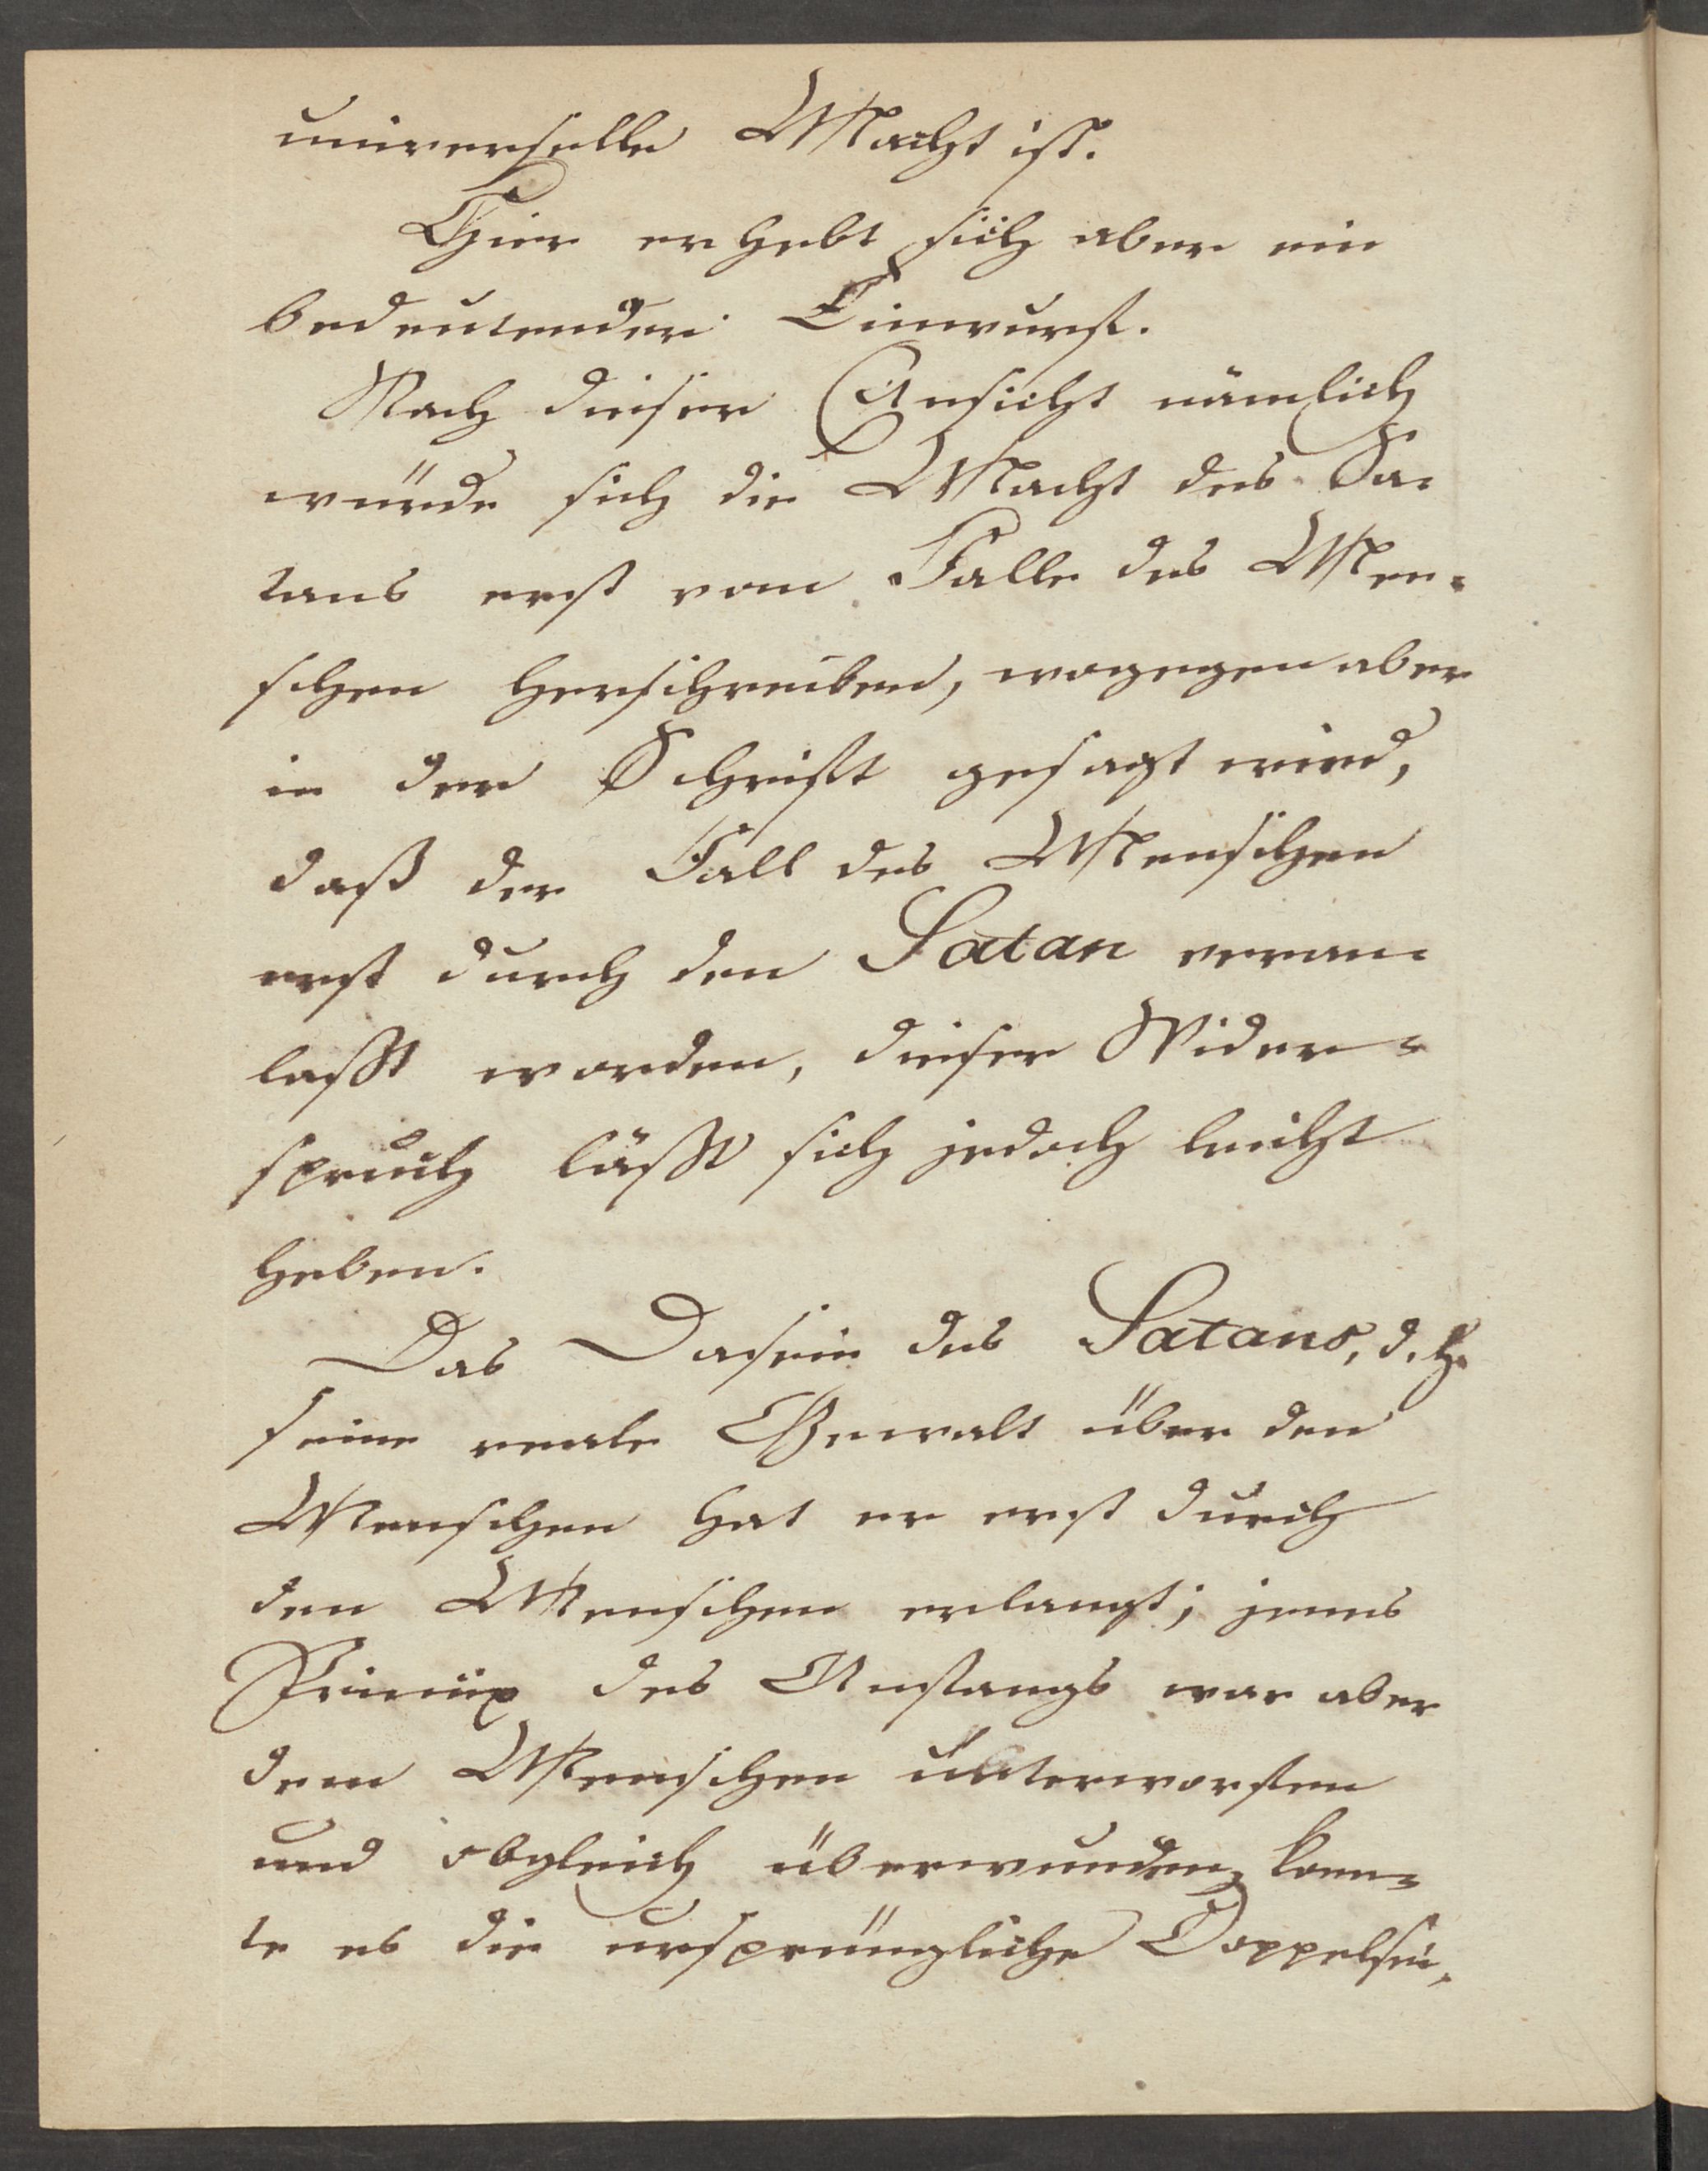 universelle Macht ist.
Hier erhebt sich aber ein
bedeutender Einwurf.
Nach dieser Ansicht nämlich
würde sich die Macht des Sa-
tans erst vom Falle des Men-
schen herschreiben, wogegen aber
in der Schrift gesagt wird,
daß der Fall des Menschen
erst durch den Satan veran-
laßt worden, dieser Wider-
spruch läßt sich jedoch leicht
heben.
Das Dasein des Satans, d. h.
seine reale Gewalt über den
Menschen hat er erst durch
den Menschen erlangt; jenes
Princip des Anfangs war aber
dem Menschen unterworfen
und obgleich überwunden, konn-
te es die ursprüngliche Doppelsei-